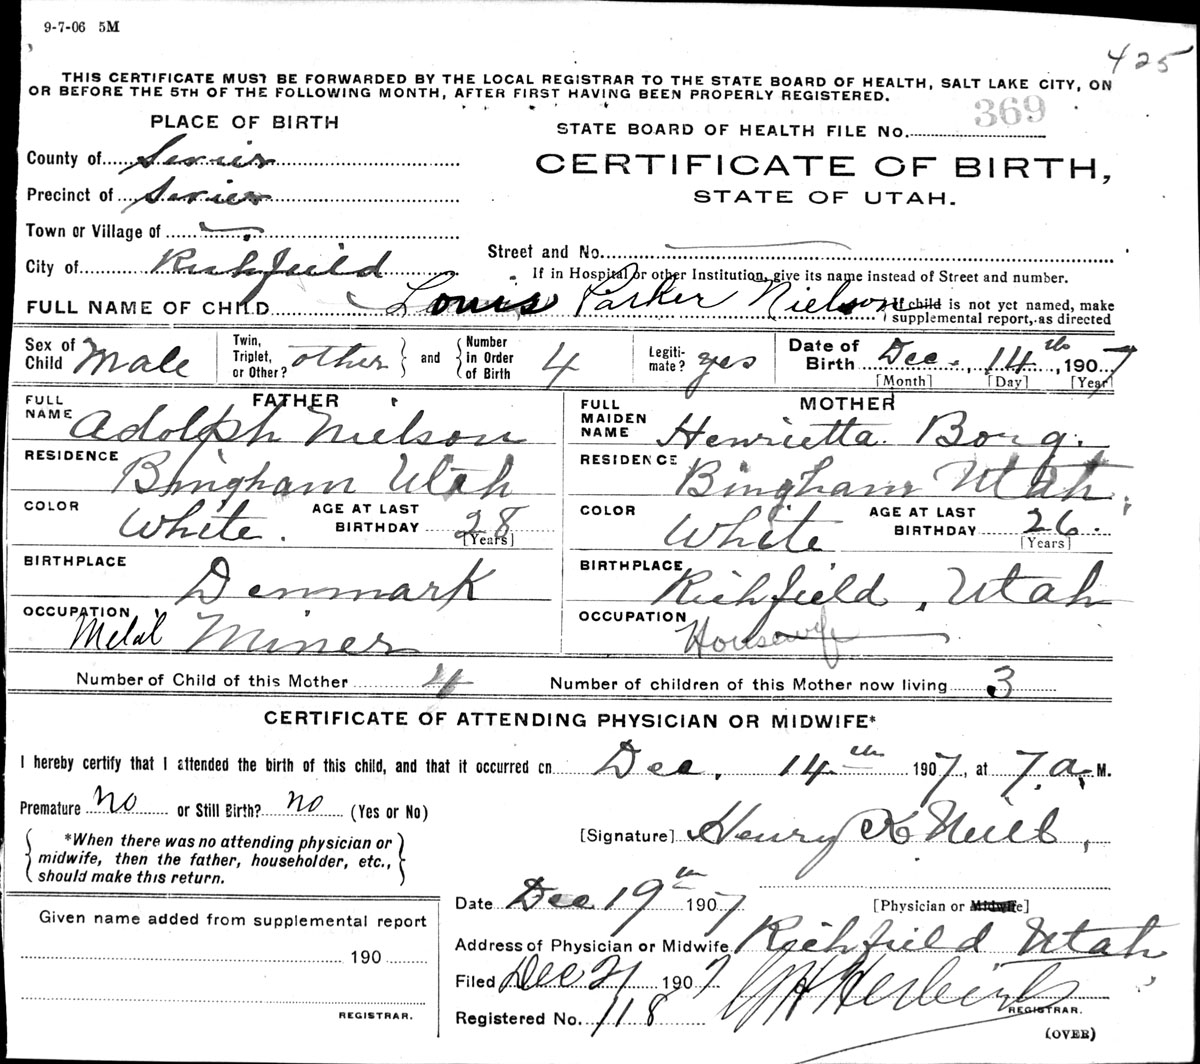 9-7-06 5M
425
THIS CERTIFICATE MUST BE FORWARDED BY THE LOCAL REGISTRAR TO THE STATE BOARD OF HEALTH, SALT LAKE CITY, ON
OR BEFORE THE 5TH OF THE FOLLOWING MONTH, AFTER FIRST HAVING BEEN PROPERLY REGISTERED.
PLACE OF BIRTH
STATE BOARD OF HEALTH FILE NO. 369
County of Sevier
CERTIFICATE OF BIRTH,
Precinct of Sevier
STATE OF UTAH.
Town or Village of
Street and No.
City of Richfield
If in Hospital or other Institution, give its name instead of Street and number.
FULL NAME OF CHILD Louis Parker Nielson
If child is not yet named, make
supplemental report, as directed
Sex of Child Male
Twin, Triplet, or Other? other and Number in Order of Birth 4
Legitimate? yes
Date of Birth Dec. 14th, 1907
[Month] [Day] [Year]
FATHER
FULL NAME Adolph Nielson
RESIDENCE Bingham Utah
COLOR White. AGE AT LAST BIRTHDAY 28 [Years]
BIRTHPLACE Denmark
OCCUPATION Metal Miner
MOTHER
FULL MAIDEN NAME Henrietta Borg.
RESIDENCE Bingham Utah.
COLOR White AGE AT LAST BIRTHDAY 26. [Years]
BIRTHPLACE Richfield, Utah
OCCUPATION Housewife
Number of Child of this Mother 4 Number of children of this Mother now living 3
CERTIFICATE OF ATTENDING PHYSICIAN OR MIDWIFE*
I hereby certify that I attended the birth of this child, and that it occurred on Dec. 14th 1907, at 7 a. M.
Premature no or Still Birth? no (Yes or No)
[Signature] Henry K Neill,
*When there was no attending physician or
midwife, then the father, householder, etc.,
should make this return.
Date Dec 19th 1907
[Physician or Midwife]
Given name added from supplemental report
190
REGISTRAR.
Address of Physician or Midwife Richfield Utah
Filed Dec 21 1907
REGISTRAR.
Registered No. 118
(OVER)